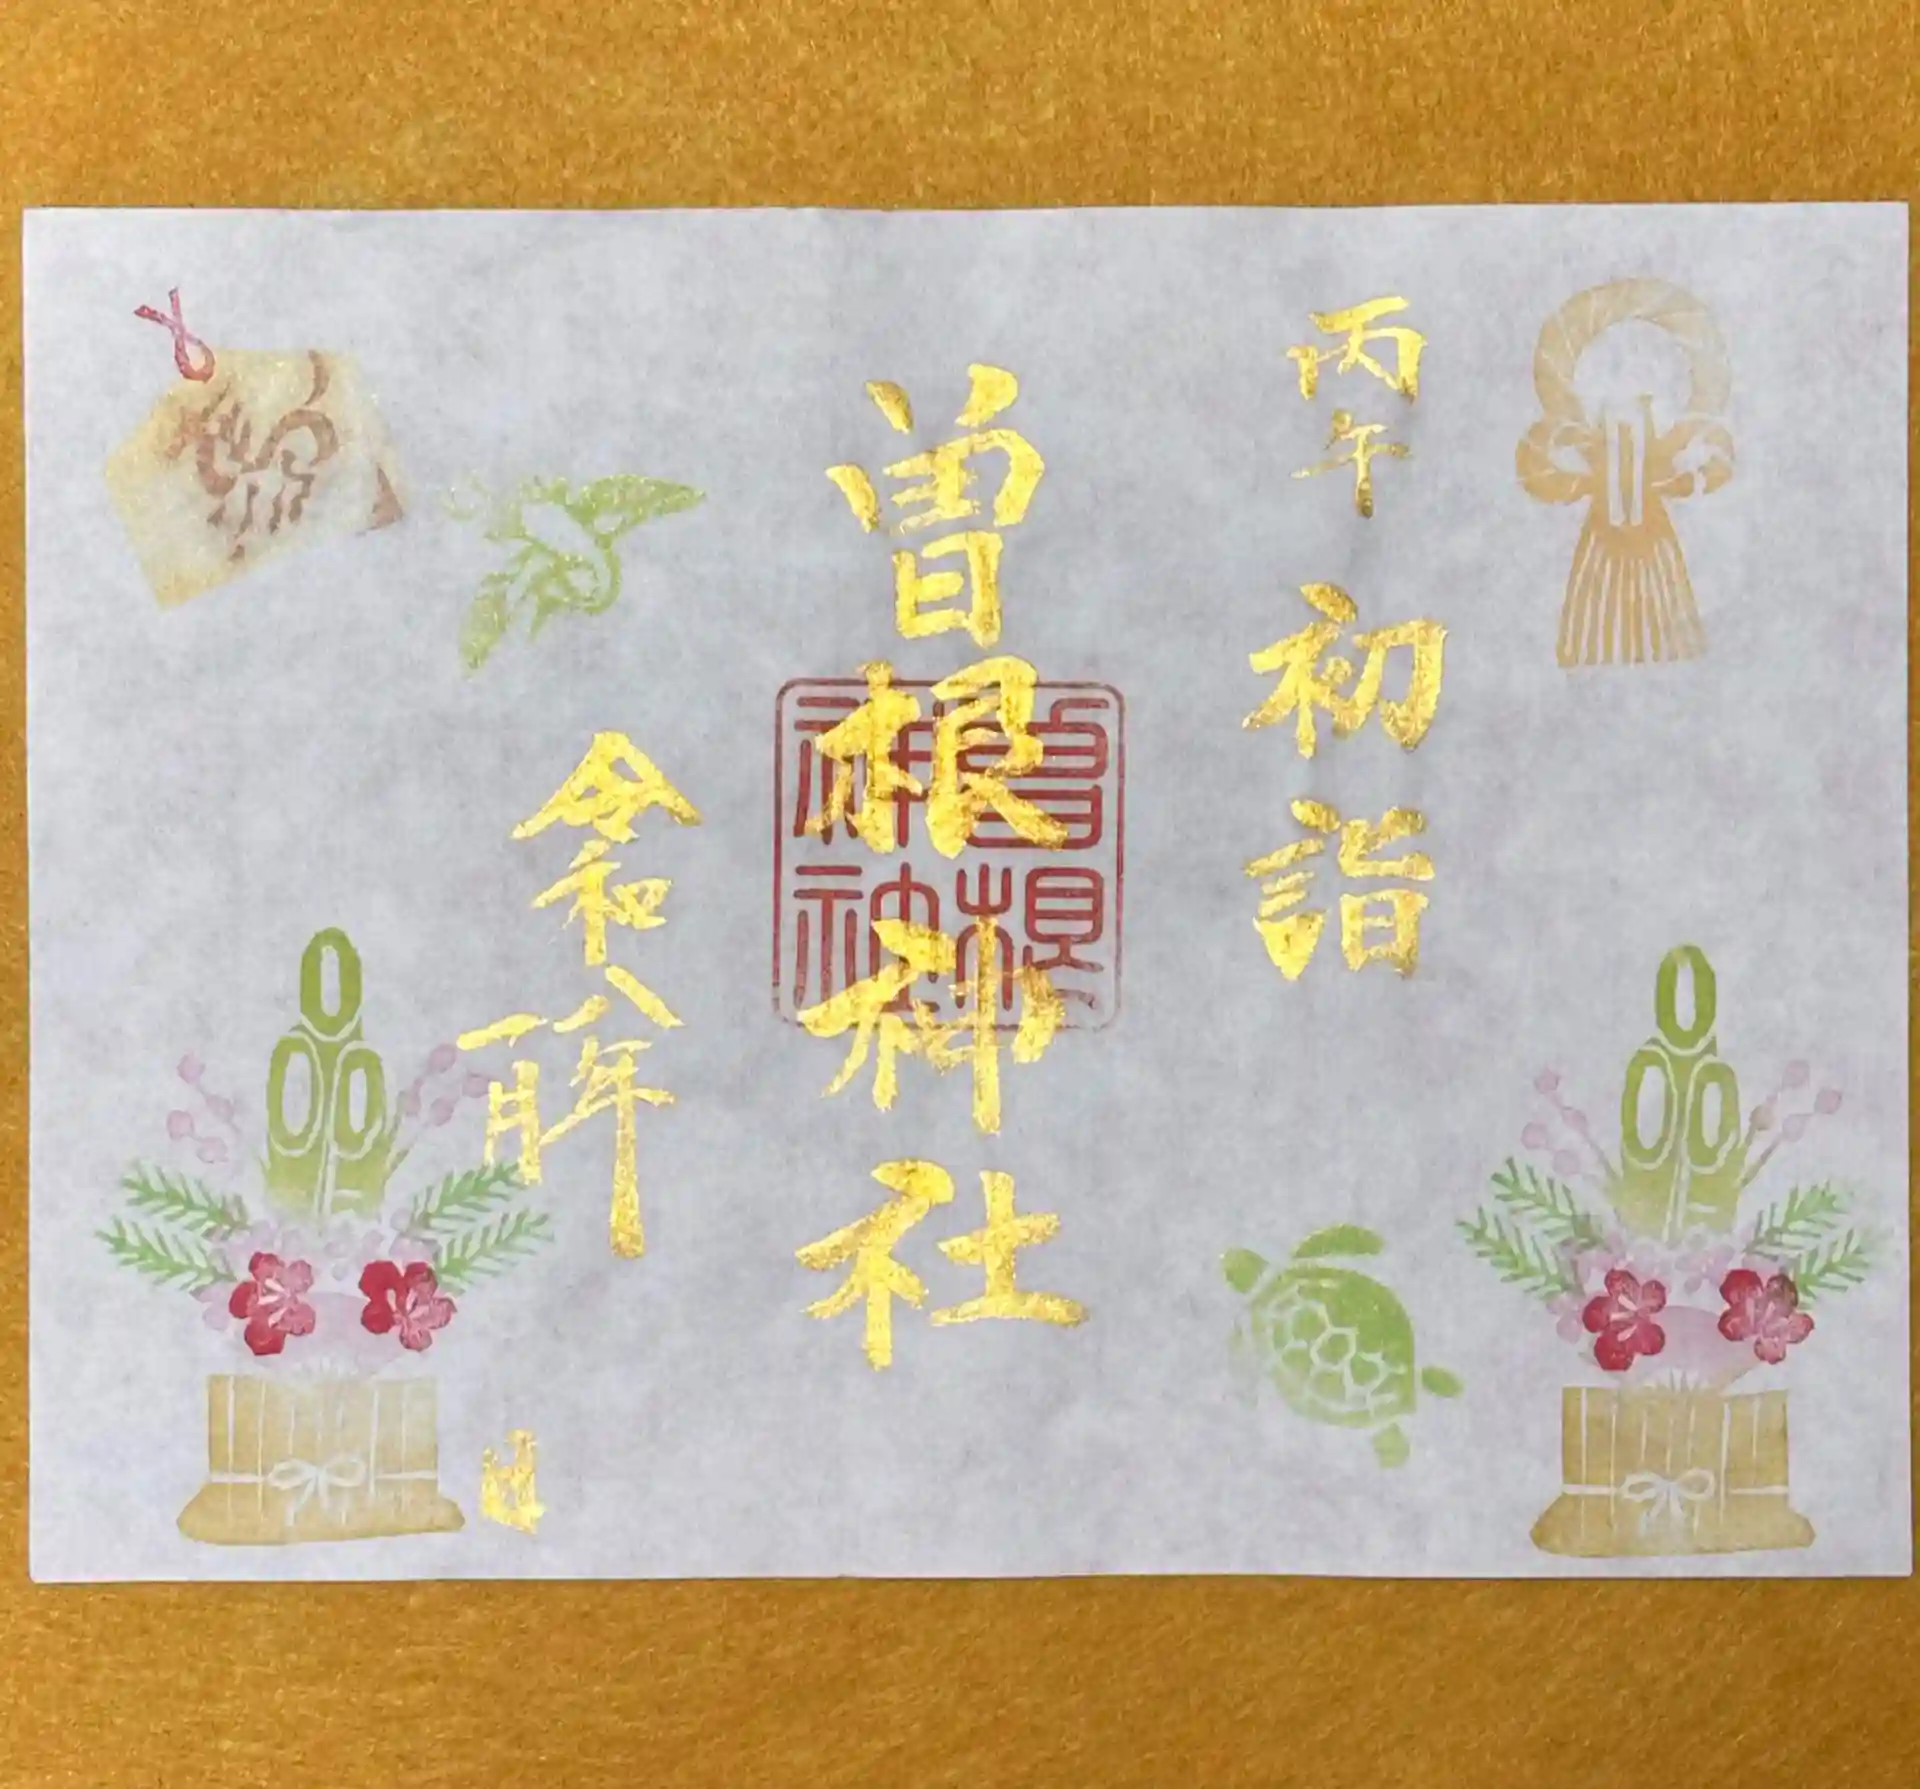 丙午 初詣
曽根神社
曽根
神社
令和八年
一月
日